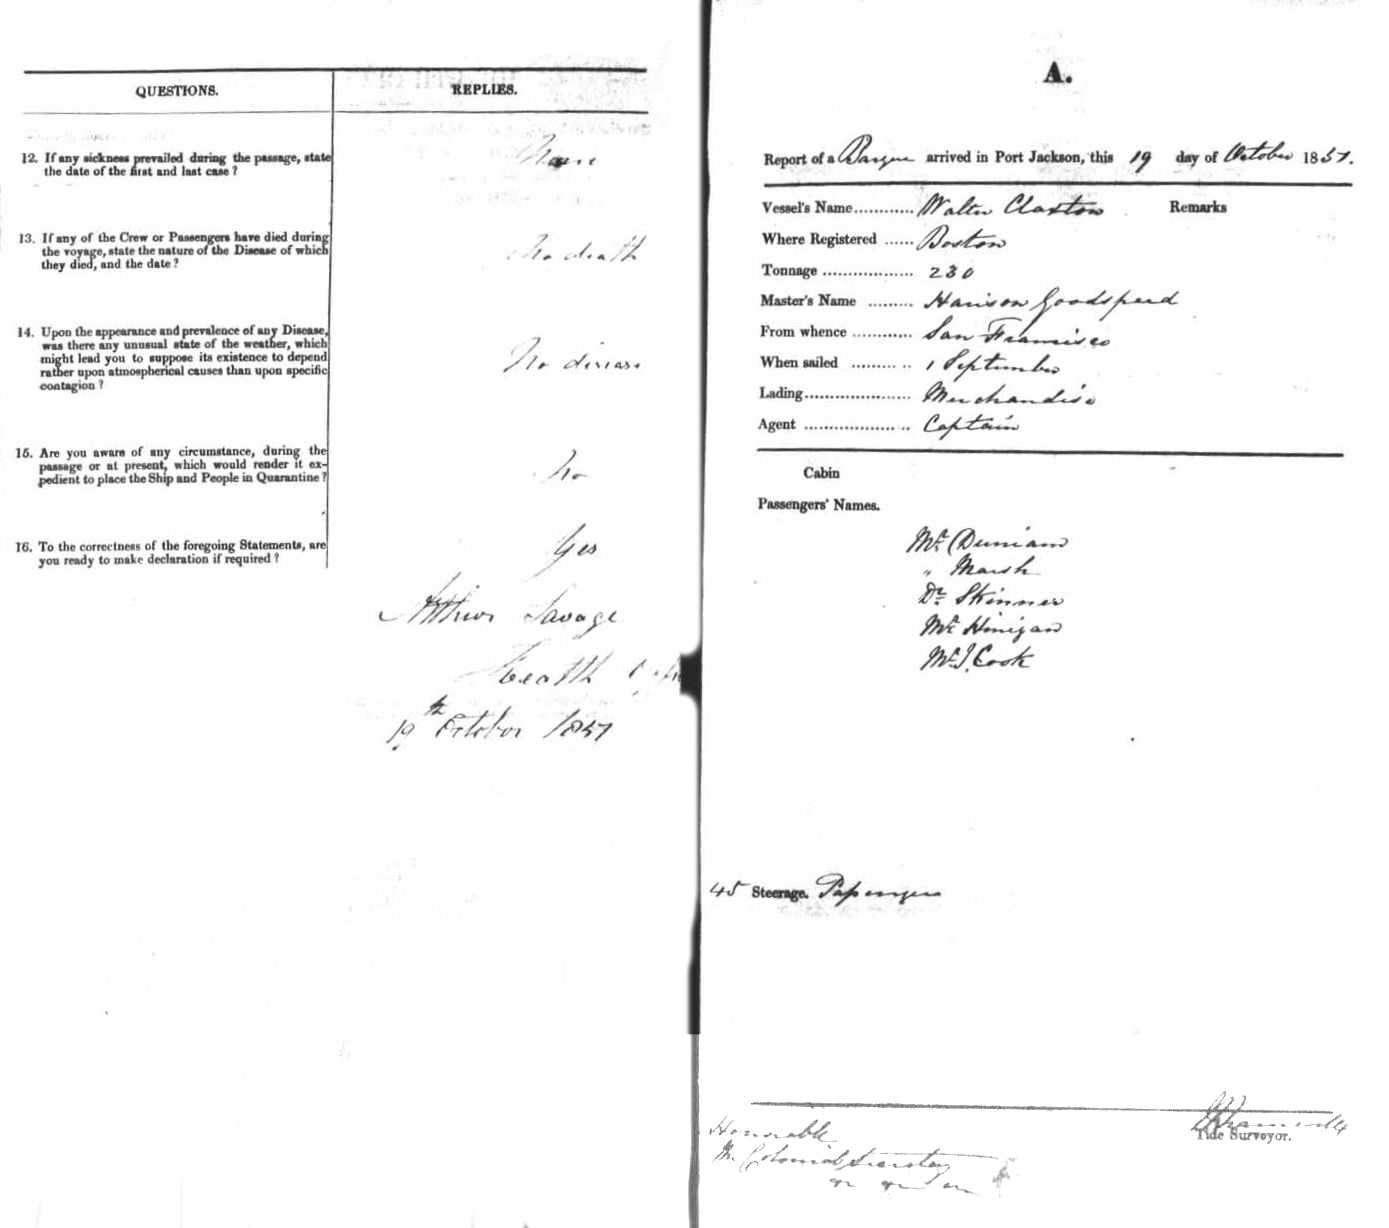 QUESTIONS.
REPLIES.
12. If any sickness prevailed during the passage, state
the date of the first and last case?
None
13. If any of the Crew or Passengers have died during
the voyage, state the nature of the Disease of which
they died, and the date?
No death
14. Upon the appearance and prevalence of any Disease,
was there any unusual state of the weather, which
might lead you to suppose its existence to depend
rather upon atmospherical causes than upon specific
contagion?
No disease
15. Are you aware of any circumstance, during the
passage or at present, which would render it ex-
pedient to place the Ship and People in Quarantine?
No
16. To the correctness of the foregoing Statements, are
you ready to make declaration if required?
Yes
Arthur Savage
Health
19th October 1857
A.
Report of a Barque arrived in Port Jackson, this 19 day of October 1857.
Vessel's Name............ Walter Claxton
Remarks
Where Registered ...... Boston
Tonnage .................. 230
Master's Name ......... Harison Goodspeed
From whence ............ San Francisco
When sailed ......... .. 1 September
Lading..................... Merchandise
Agent .................. .. Captain
Cabin
Passengers' Names.
Mr. Duniam
" Marsh
Dr. Skinner
Mr. Hinigan
Mr. J. Cook
45 Steerage. Passengers
Tide Surveyor.
Honorable
The Colonial Secretary